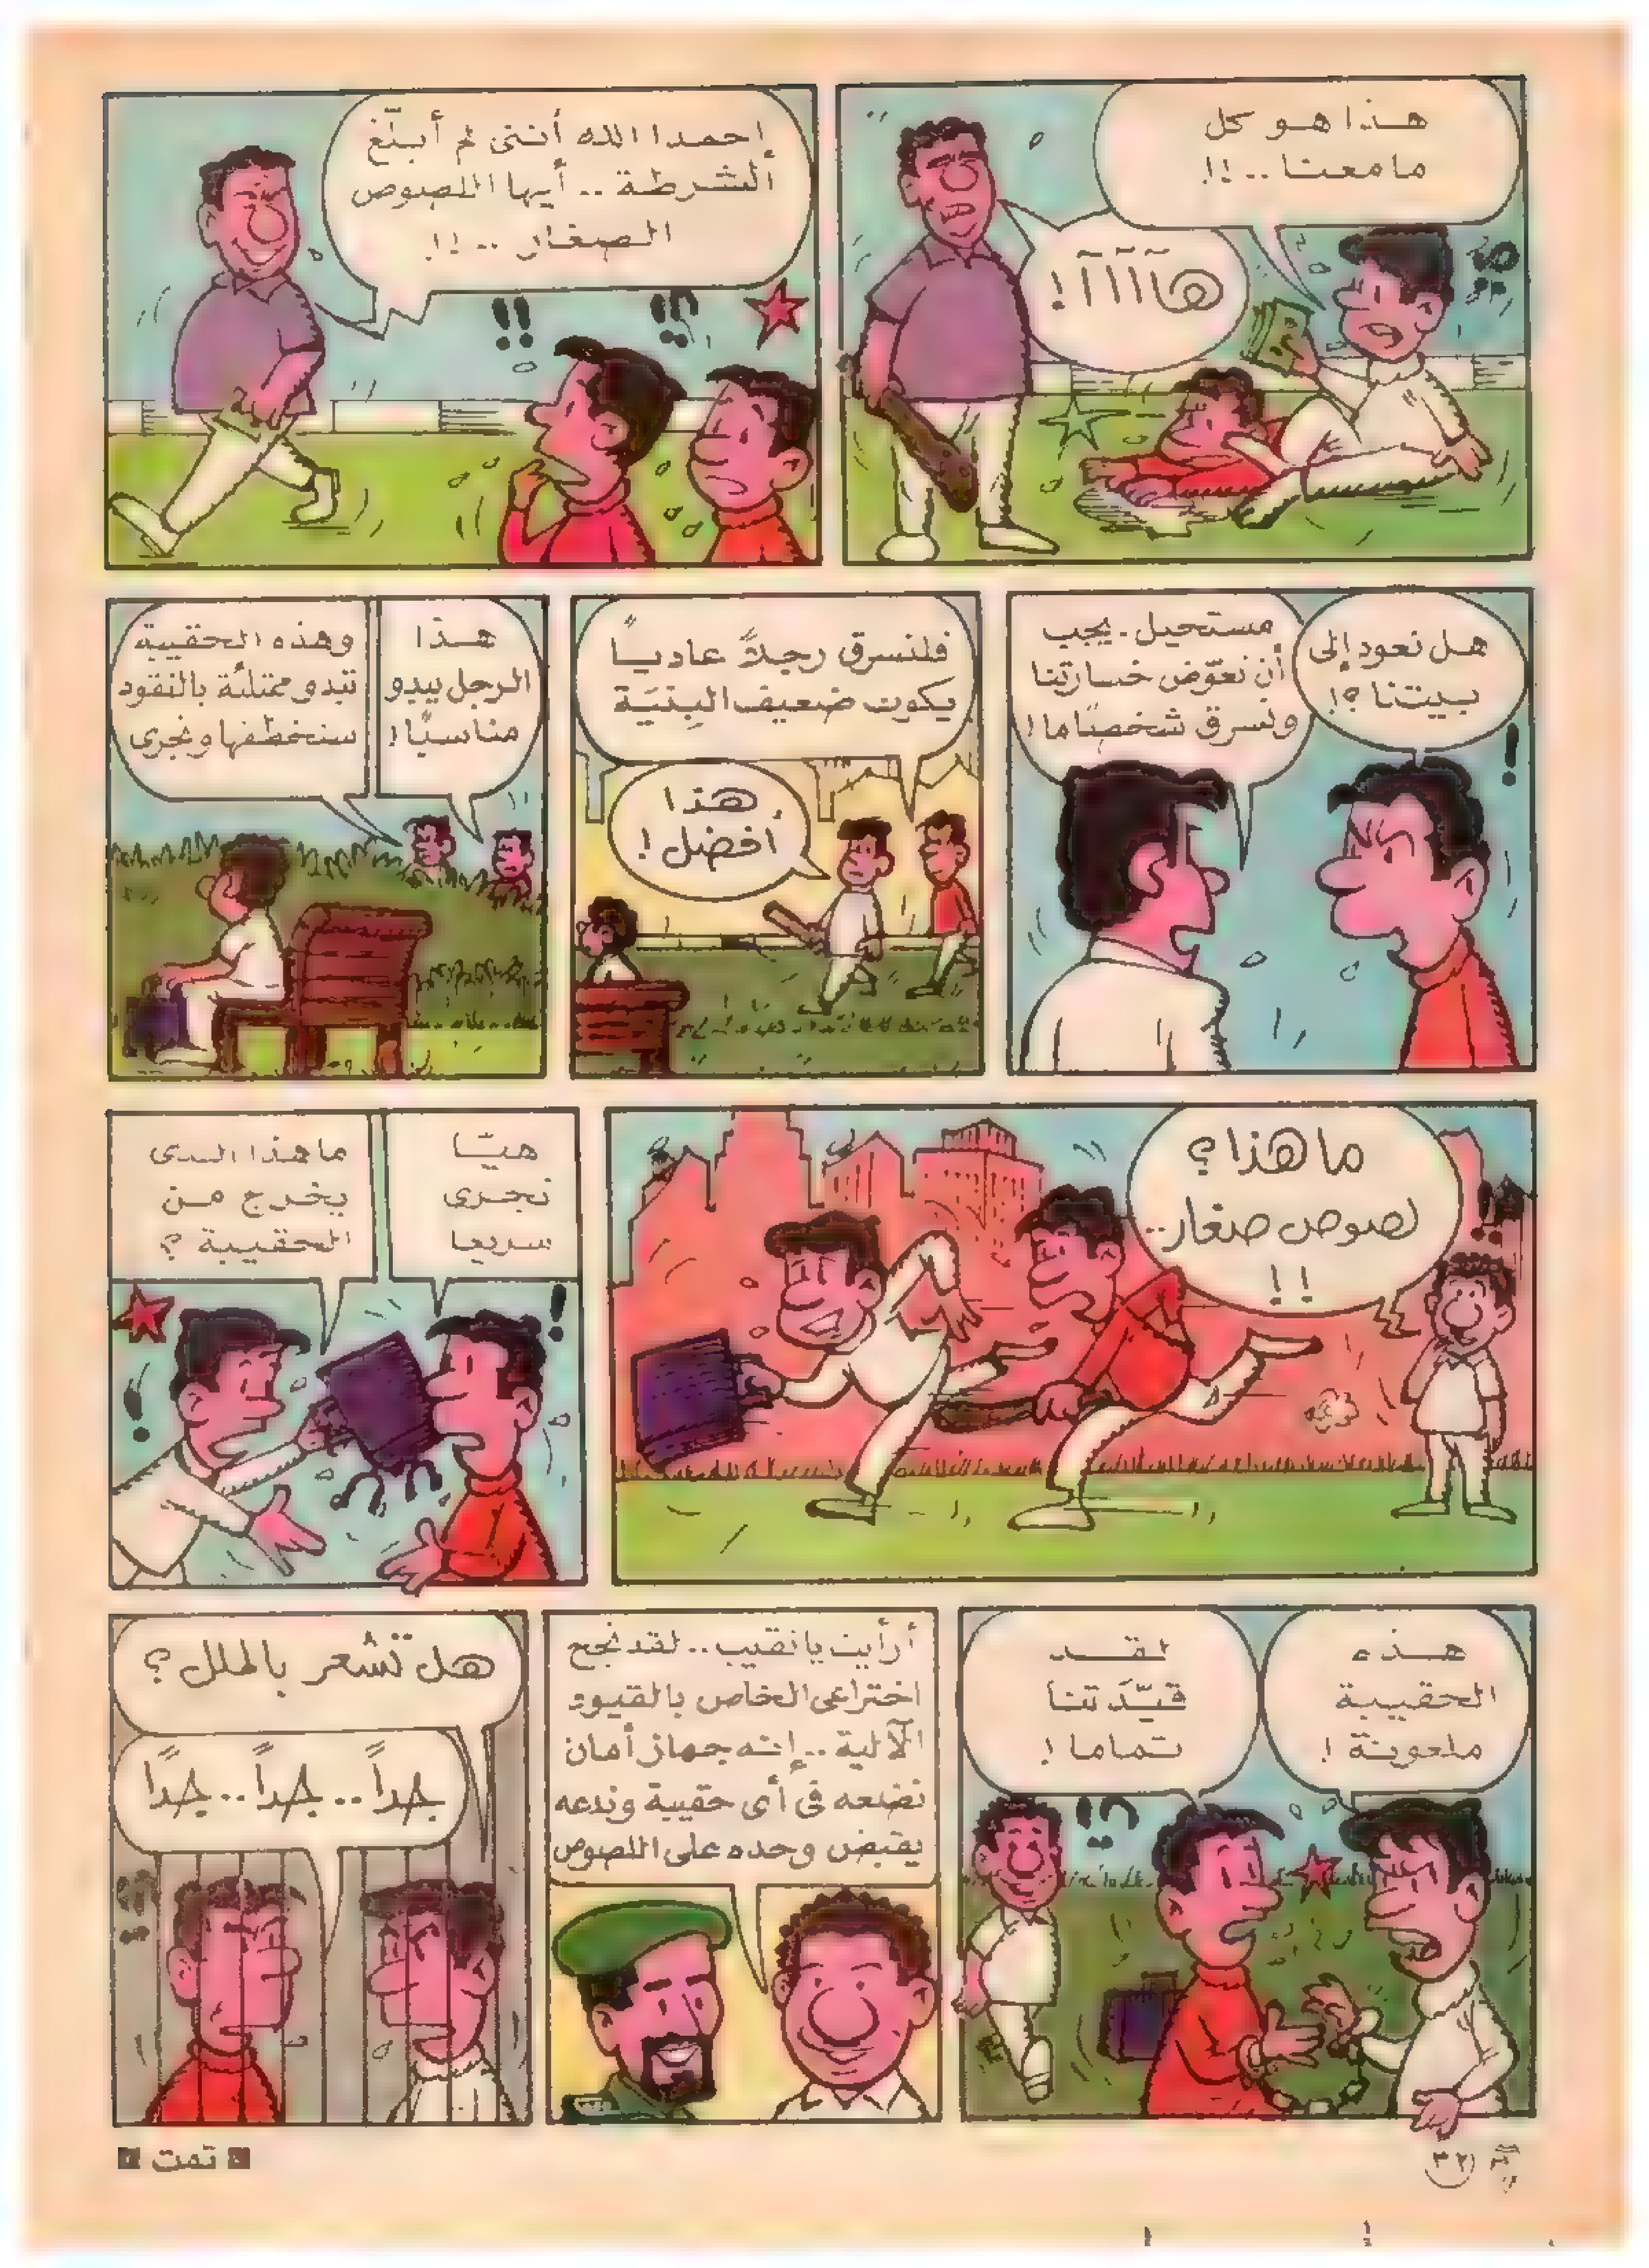 هذا هو كل
ما معنا ..!!
هاآآآآ!
إحمدا الله أننى لم أبلّغ
الشرطة .. أيها اللصوص
الصغار ..!!
!!
هل نعود إلى
بيتنا ؟!
مستحيل . يجب
أن نعوّض خسارتنا
ونسرق شخصًا ما !
!
فلنسرق رجلاً عادياً
يكون ضعيف البِنيَة
هذا
أفضل !
هذا
الرجل يبدو
مناسبًا !
وهذه الحقيبة
تبدو ممتلئة بالنقود
سنخطفها ونجرى
ما هذا ؟
لصوص صغار ..
!!
هيّا
نجرى
سريعا
ما هذا الذى
يخرج من
الحقيبة ؟
!
!
هذه
الحقيبة
ملعونة !
لقد
قيّدَتنا
تماما !
أرأيت يا نقيب .. لقد نجح
اختراعى الخاص بالقيود
الآلية .. إنه جهاز أمان
نضعه فى أى حقيبة وندعه
يقبض وحده على اللصوص
هل تشعر بالملل ؟
جداً .. جداً .. جدًا
٣٢
تمت